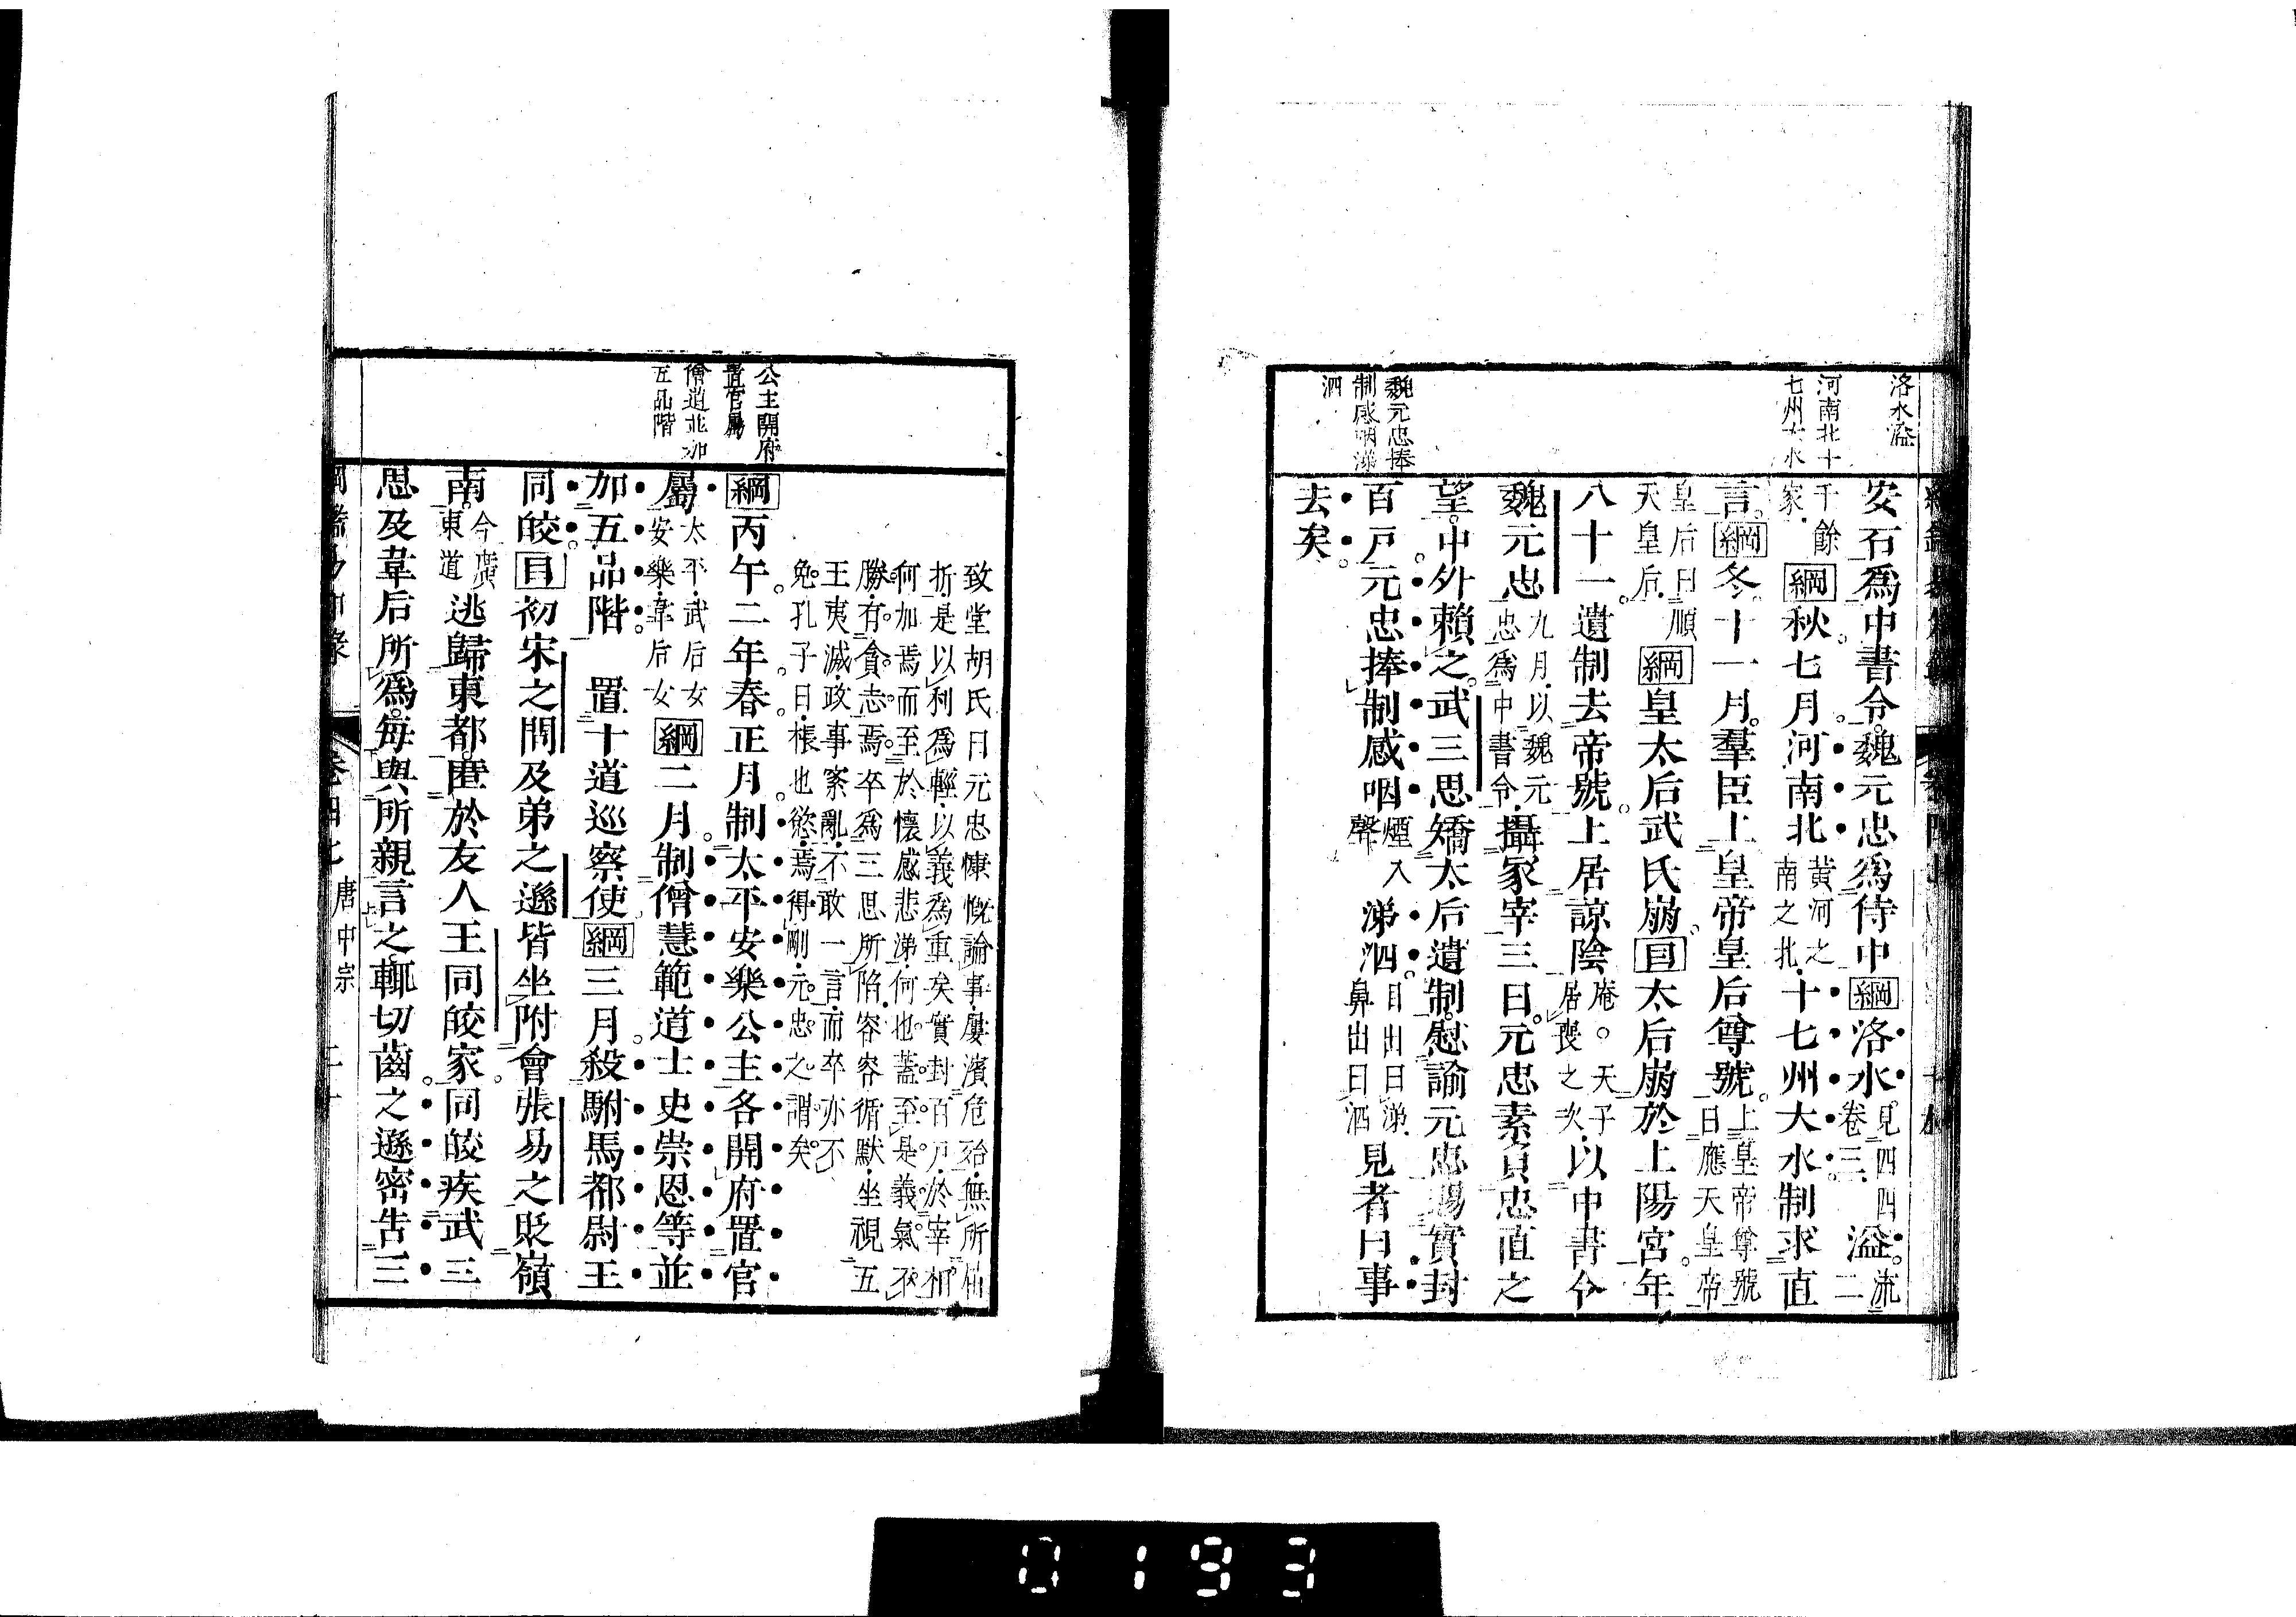 洛水溢
河南北十
七州大水
魏元忠捧
制感咽涕
泗
安石爲中書令魏元忠爲侍中綱洛水見四四卷三溢流二
千餘家綱秋七月河南北黃河之南之北十七州大水制求直
言綱冬十一月羣臣上皇帝皇后尊號上皇帝尊號曰應天皇帝
皇后曰順天皇后綱皇太后武氏崩目太后崩於上陽宮年
八十一遺制去帝號上居諒陰庵天子居喪之次以中書令
魏元忠九月以魏元忠爲中書令攝冢宰三日元忠素負忠直之
望中外賴之武三思矯太后遺制慰諭元忠賜實封
百戸元忠捧制感咽煙入聲涕泗目出曰涕鼻出曰泗見者曰事
去矣
公主開府
置官屬
僧道並加
五品階
致堂胡氏曰元忠慷慨論事屢濱危殆無所
折是以利爲輕以義爲重矣實封百戸於宰相
何加焉而至於懷感悲涕何也蓋至是義氣不
勝有貪志焉卒爲三思所陷容容循默坐視五
王夷滅政事紊亂不敢一言而卒亦不
免孔子曰棖也慾焉得剛元忠之謂矣
綱丙午二年春正月制太平安樂公主各開府置官
屬太平武后女安樂韋后女綱二月制僧慧範道士史崇恩等並
加五品階　置十道巡察使綱三月殺駙馬都尉王
同皎目初宋之問及弟之遜皆坐附會張易之貶嶺
南今廣東道逃歸東都匿於友人王同皎家同皎疾武三
思及韋后所爲每與所親言之輒切齒之遜密告三
卷四七　唐中宗
0193